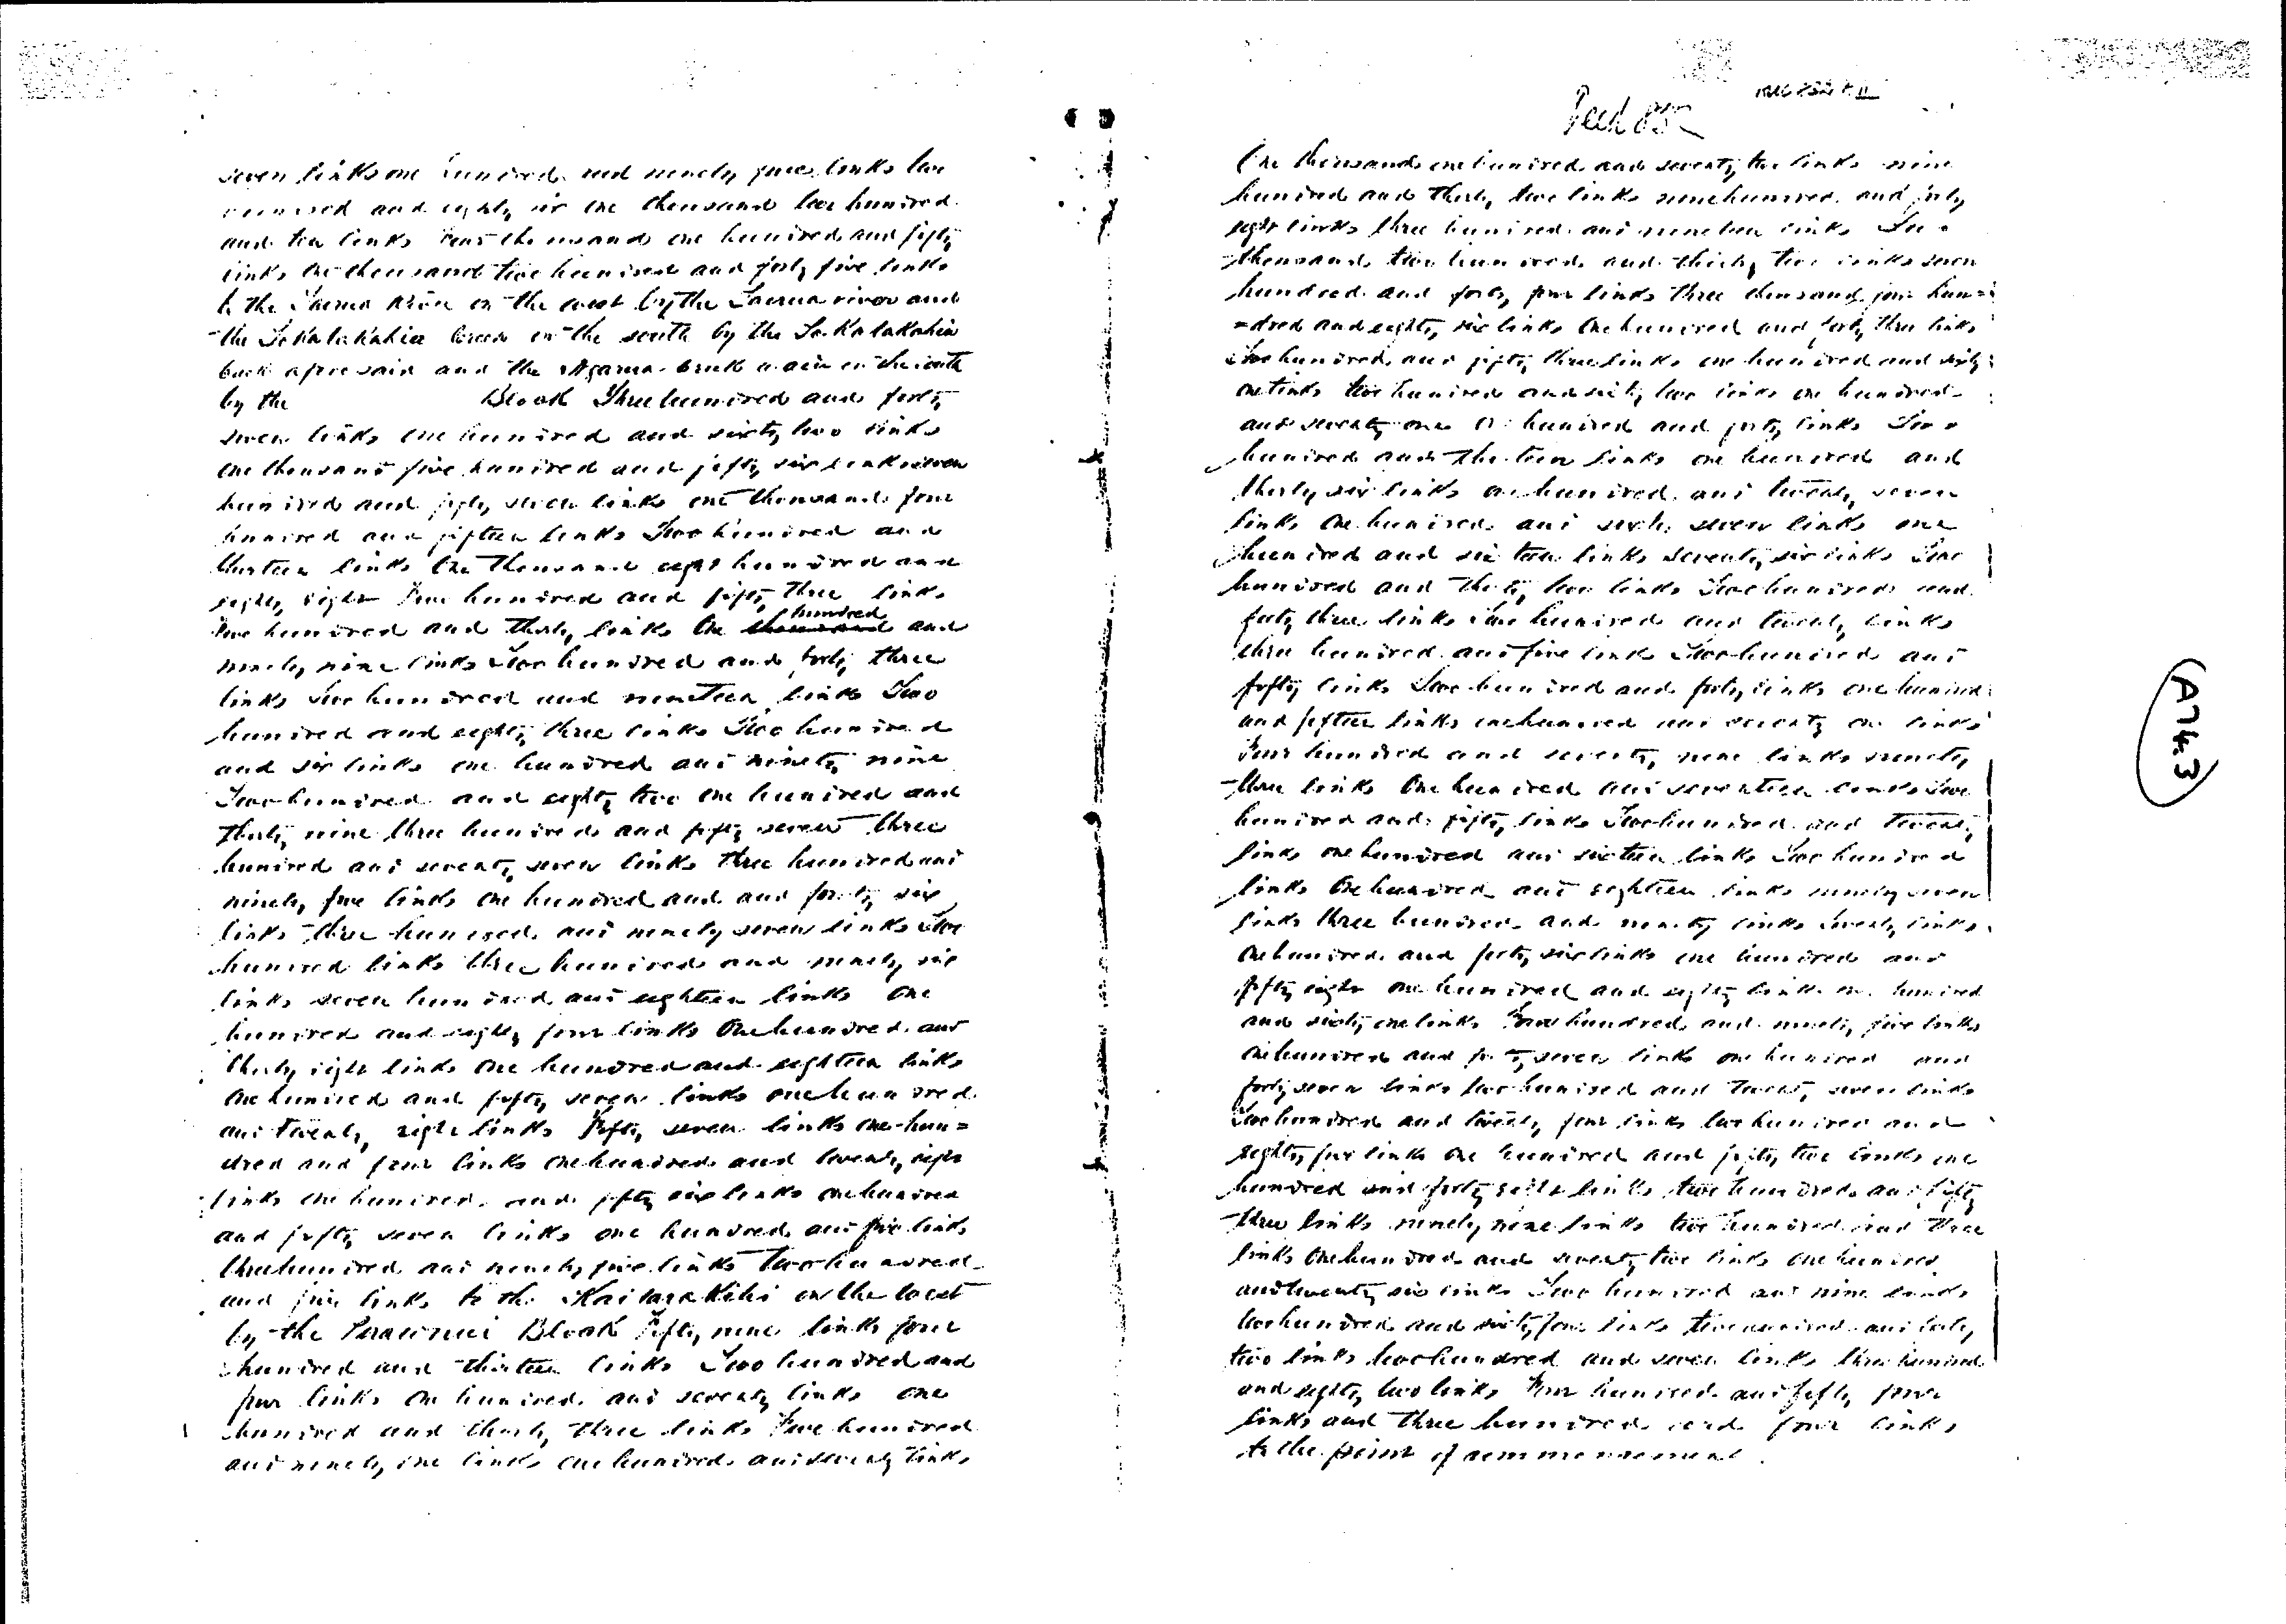 seven links one hundred and ninety five links two
hundred and eighty six one thousand two hundred
and ten links Four thousand one hundred and fifty
links One thousand two hundred and forty five links
to the river on the west by the river and
the on the south by the
aforesaid and the again on the south
by the Block Three hundred and forty
seven links one hundred and sixty two links
one thousand five hundred and fifty six links seven
hundred and fifty seven links one thousand four
hundred and fifteen links Two hundred and
thirteen links One thousand eight hundred and
eighty eight Five hundred and fifty three links
hundred
Five hundred and thirty links One thousand and
ninety nine links Two hundred and forty three
links Two hundred and nineteen links Two
hundred and eighty three links Two hundred
and six links one hundred and ninety nine
Two hundred and eighty two one hundred and
thirty nine three hundred and fifty seven three
hundred and seventy seven links three hundred and
ninety five links one hundred and and forty six
links three hundred and ninety seven links Two
hundred links three hundred and ninety six
links seven hundred and eighteen links One
hundred and eighty four links One hundred and
thirty eight links One hundred and eighteen links
One hundred and fifty seven links one hundred
and twenty eight links Fifty seven links one hun=
dred and four links one hundred and twenty eight
links one hundred and fifty six links one hundred
and fifty seven links one hundred and five links
three hundred and ninety five links two hundred
and five links to the on the west
by the Block Fifty nine links four
hundred and thirteen links Two hundred and
four links One hundred and seventy links one
hundred and thirty three links Five hundred
and ninety one links one hundred and seventy links
One thousand one hundred and seventy two links nine
hundred and thirty two links nine hundred and forty
eight links three hundred and nineteen links
thousand two hundred and thirty two links seven
hundred and forty four links three thousand four hun=
=dred and eighty six links One hundred and forty three links
Two hundred and fifty three links one hundred and sixty
one links two hundred and sixty two links one hundred
and seventy one hundred and forty links Two
hundred and thirteen links one hundred and
thirty six links one hundred and twenty seven
links One hundred and sixty seven links one
hundred and sixteen links seventy six links Two
hundred and thirty two links Two hundred and
forty three links Two hundred and twenty links
three hundred and five links Two hundred and
fifty links Two hundred and forty links one hundred
and fifteen links one hundred and seventy one links
Four hundred and seventy nine links ninety
three links One hundred and seventeen links Two
hundred and fifty links Two hundred and twenty
links one hundred and sixteen links Two hundred
links One hundred and eighteen links ninety seven
links three hundred and ninety links links
One hundred and forty six links one hundred and
fifty eight one hundred and eighty links one hundred
and sixty one links hundred and ninety five links
One hundred and forty seven links one hundred and
forty seven links two hundred and twenty seven links
Two hundred and twenty four links two hundred and
eighty five links one hundred and fifty two links one
hundred and forty eight links two hundred and fifty
three links ninety nine links two hundred and three
links One hundred and seventy two links One hundred
and twenty six links Two hundred and nine links
two hundred and sixty four links two hundred and forty
two links two hundred and seven links three hundred
and eighty two links Four hundred and fifty four
links and three hundred and four links
to the point of commencement.
A74.3